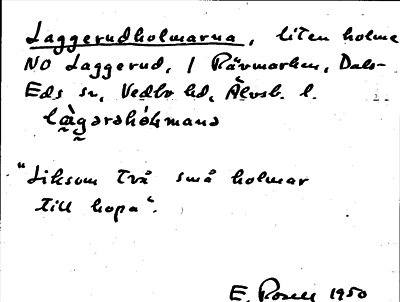 Laggerudholmarna, liten holme
NO Laggerud, i Rävmarken, Dals-
Eds sn, Vedbo hd, Älvsb. l.
"Liksom två små holmar
till hopa".
E. Rosell 1950